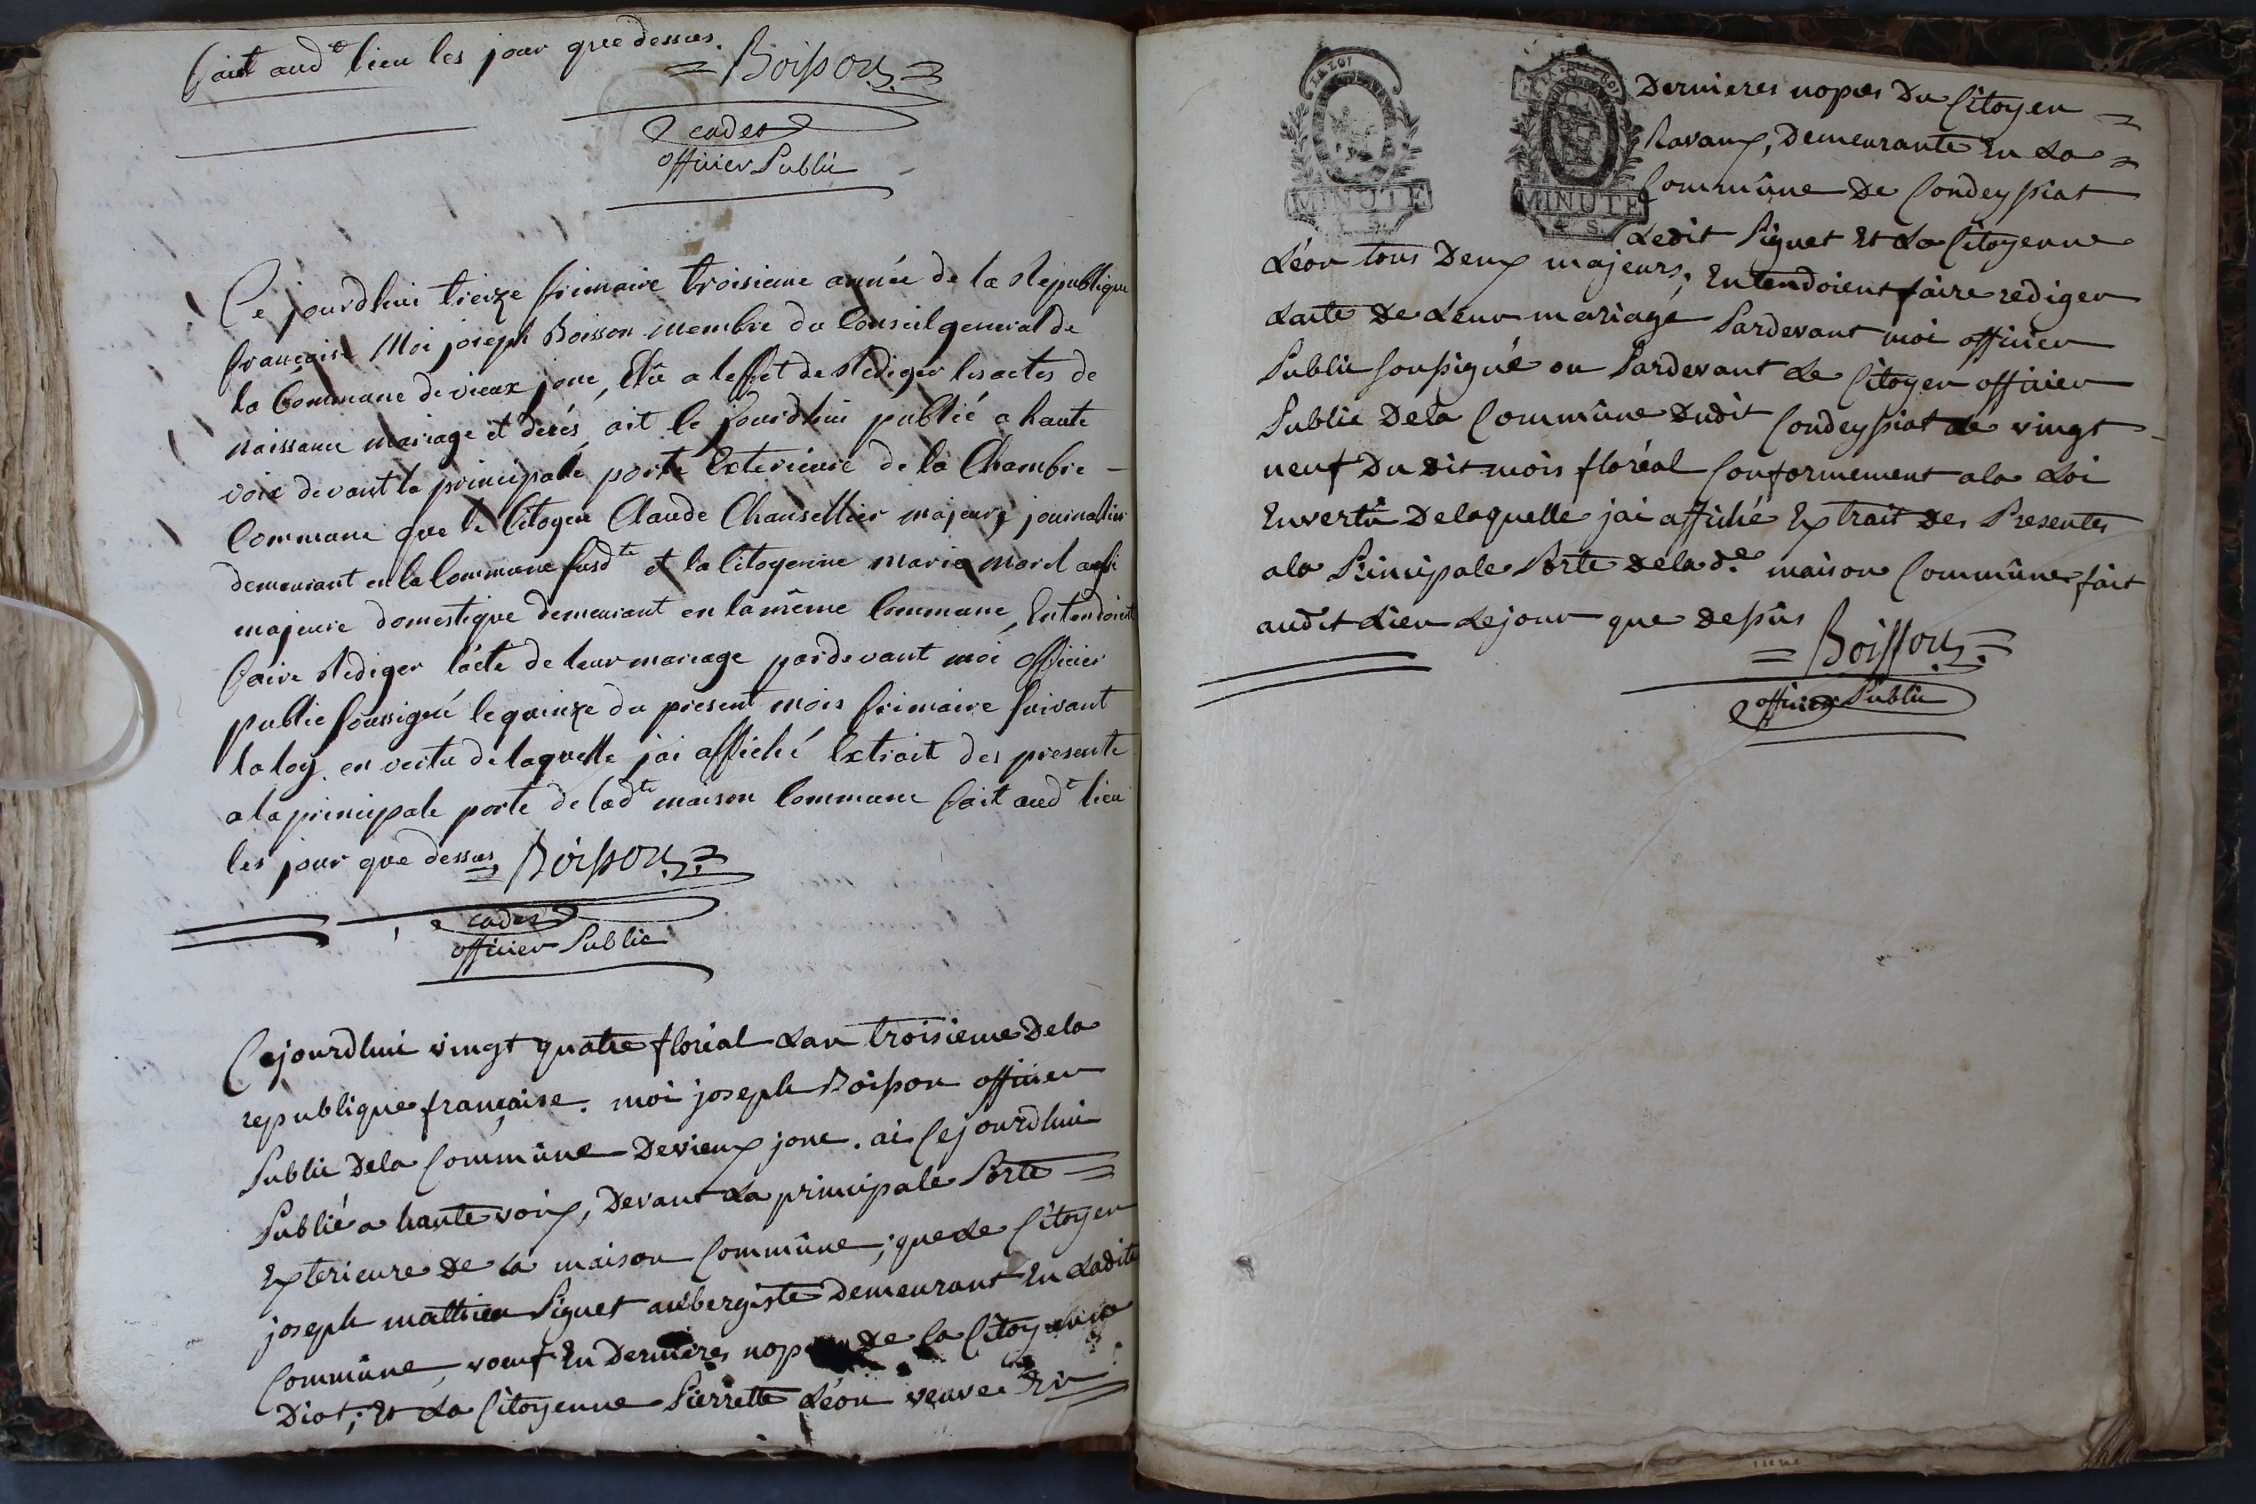 fait aud.t lieu les jour que dessus.
= Boisson =
cadet
officier Public
Ce jourdhui treize frimaire troisieme année de la Republique
française Moi joseph Boisson membre du Conseil general de
la Commune de vieux jonc, Elû a leffet de Rediger les actes de
naissance mariage et décés, ait le jourdhui publié a haute
voix devant la principale porte Exterieure de la Chambre
Commune que le Citoyen Claude Chansellier majeur journallier
demeurant en la Commune susd.te et la Citoyenne marie morel aussi
majeure domestique demeurant en la même Commune, Entendoient
faire Rediger lacte de leur mariage pardevant moi officier
public soussigné le quinze du present mois frimaire suivant
la loy en vertu de laquelle jai affiché Extrait des presente
a la principale porte de lad.te maison Commune fait aud.t lieu
les jour que dessus = Boisson =
cadet
officier Public
Cejourdhui vingt quatre floréal Lan troisieme Dela
republique française. moi joseph Boisson officier
Public Dela Commûne Devieux jonc. ai Cejourdhui
Publié a haute voix, Devant La principale Porte =
Exterieure De la maison Commûne; que Le Citoyen
joseph mathieu Piguet aubergiste Demeurant En Ladite
Commûne, voeuf En Dernieres nop De la Citoyenne
Diot; Et La Citoyenne Pierrette Léon veuve En
LA LOI
MINUTE
MINUTE
4 S.
Dernieres nopces Du Citoyen =
Ravaux, Demeurante En La =
Commûne De Condeyssiat
Ledit Piguet Et La Citoyenne
Léon tous Deux majeurs, Entendoient faire rediger
Lacte De Leur mariage Pardevant moi officier
Public soussigné ou Pardevant Le Citoyen officier
Public Dela Commûne Dudit Condeyssiat le vingt
neuf Du Dit mois floréal Conformement ala Loi
Envertû Delaquelle jai affiché Extrait Des Presentes
ala Principale Porte Dela d.e maison Commûne fait
audit Lieu Le jour que Dessûs
= Boisson =
officier Public